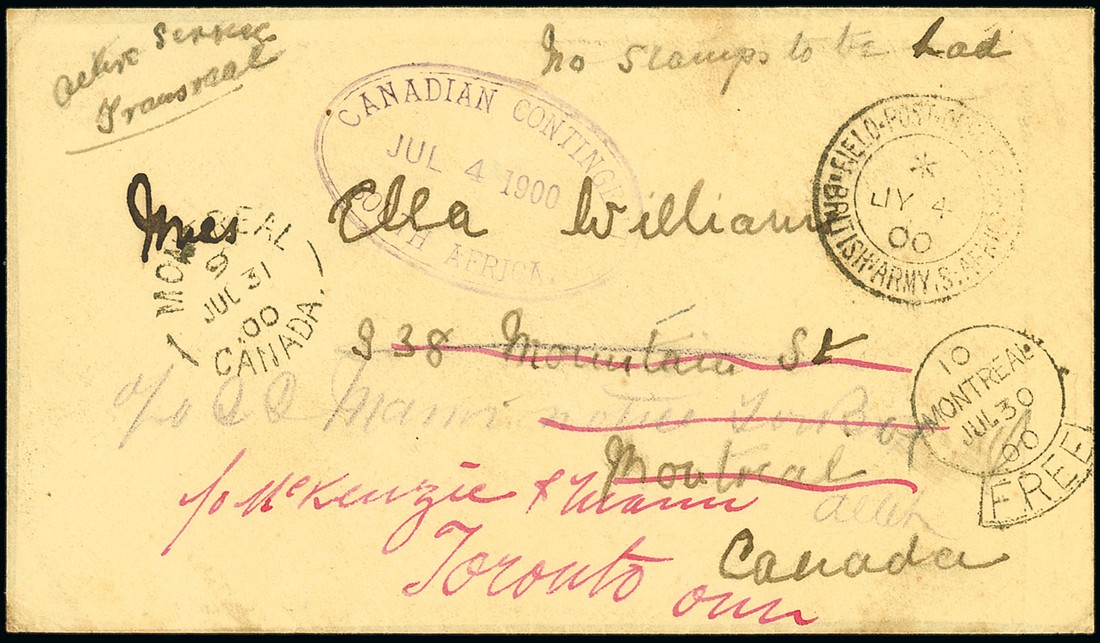 Active Service
Transvaal
No Stamps to be had
CANADIAN CONTINGENT
JUL 4 1900
SOUTH AFRICA.
FIELD-POST-OFFICE
BRITISH·ARMY·S·AFRICA
JY 4
00
Ella William
MONTREAL
9
JUL 31
00
CANADA.
338 Mountain St
c/o
Mann
Box
10
MONTREAL
JUL 30
00
FREE
Montreal
c/o McKenzie & Mann
Canada
Toronto
Onn